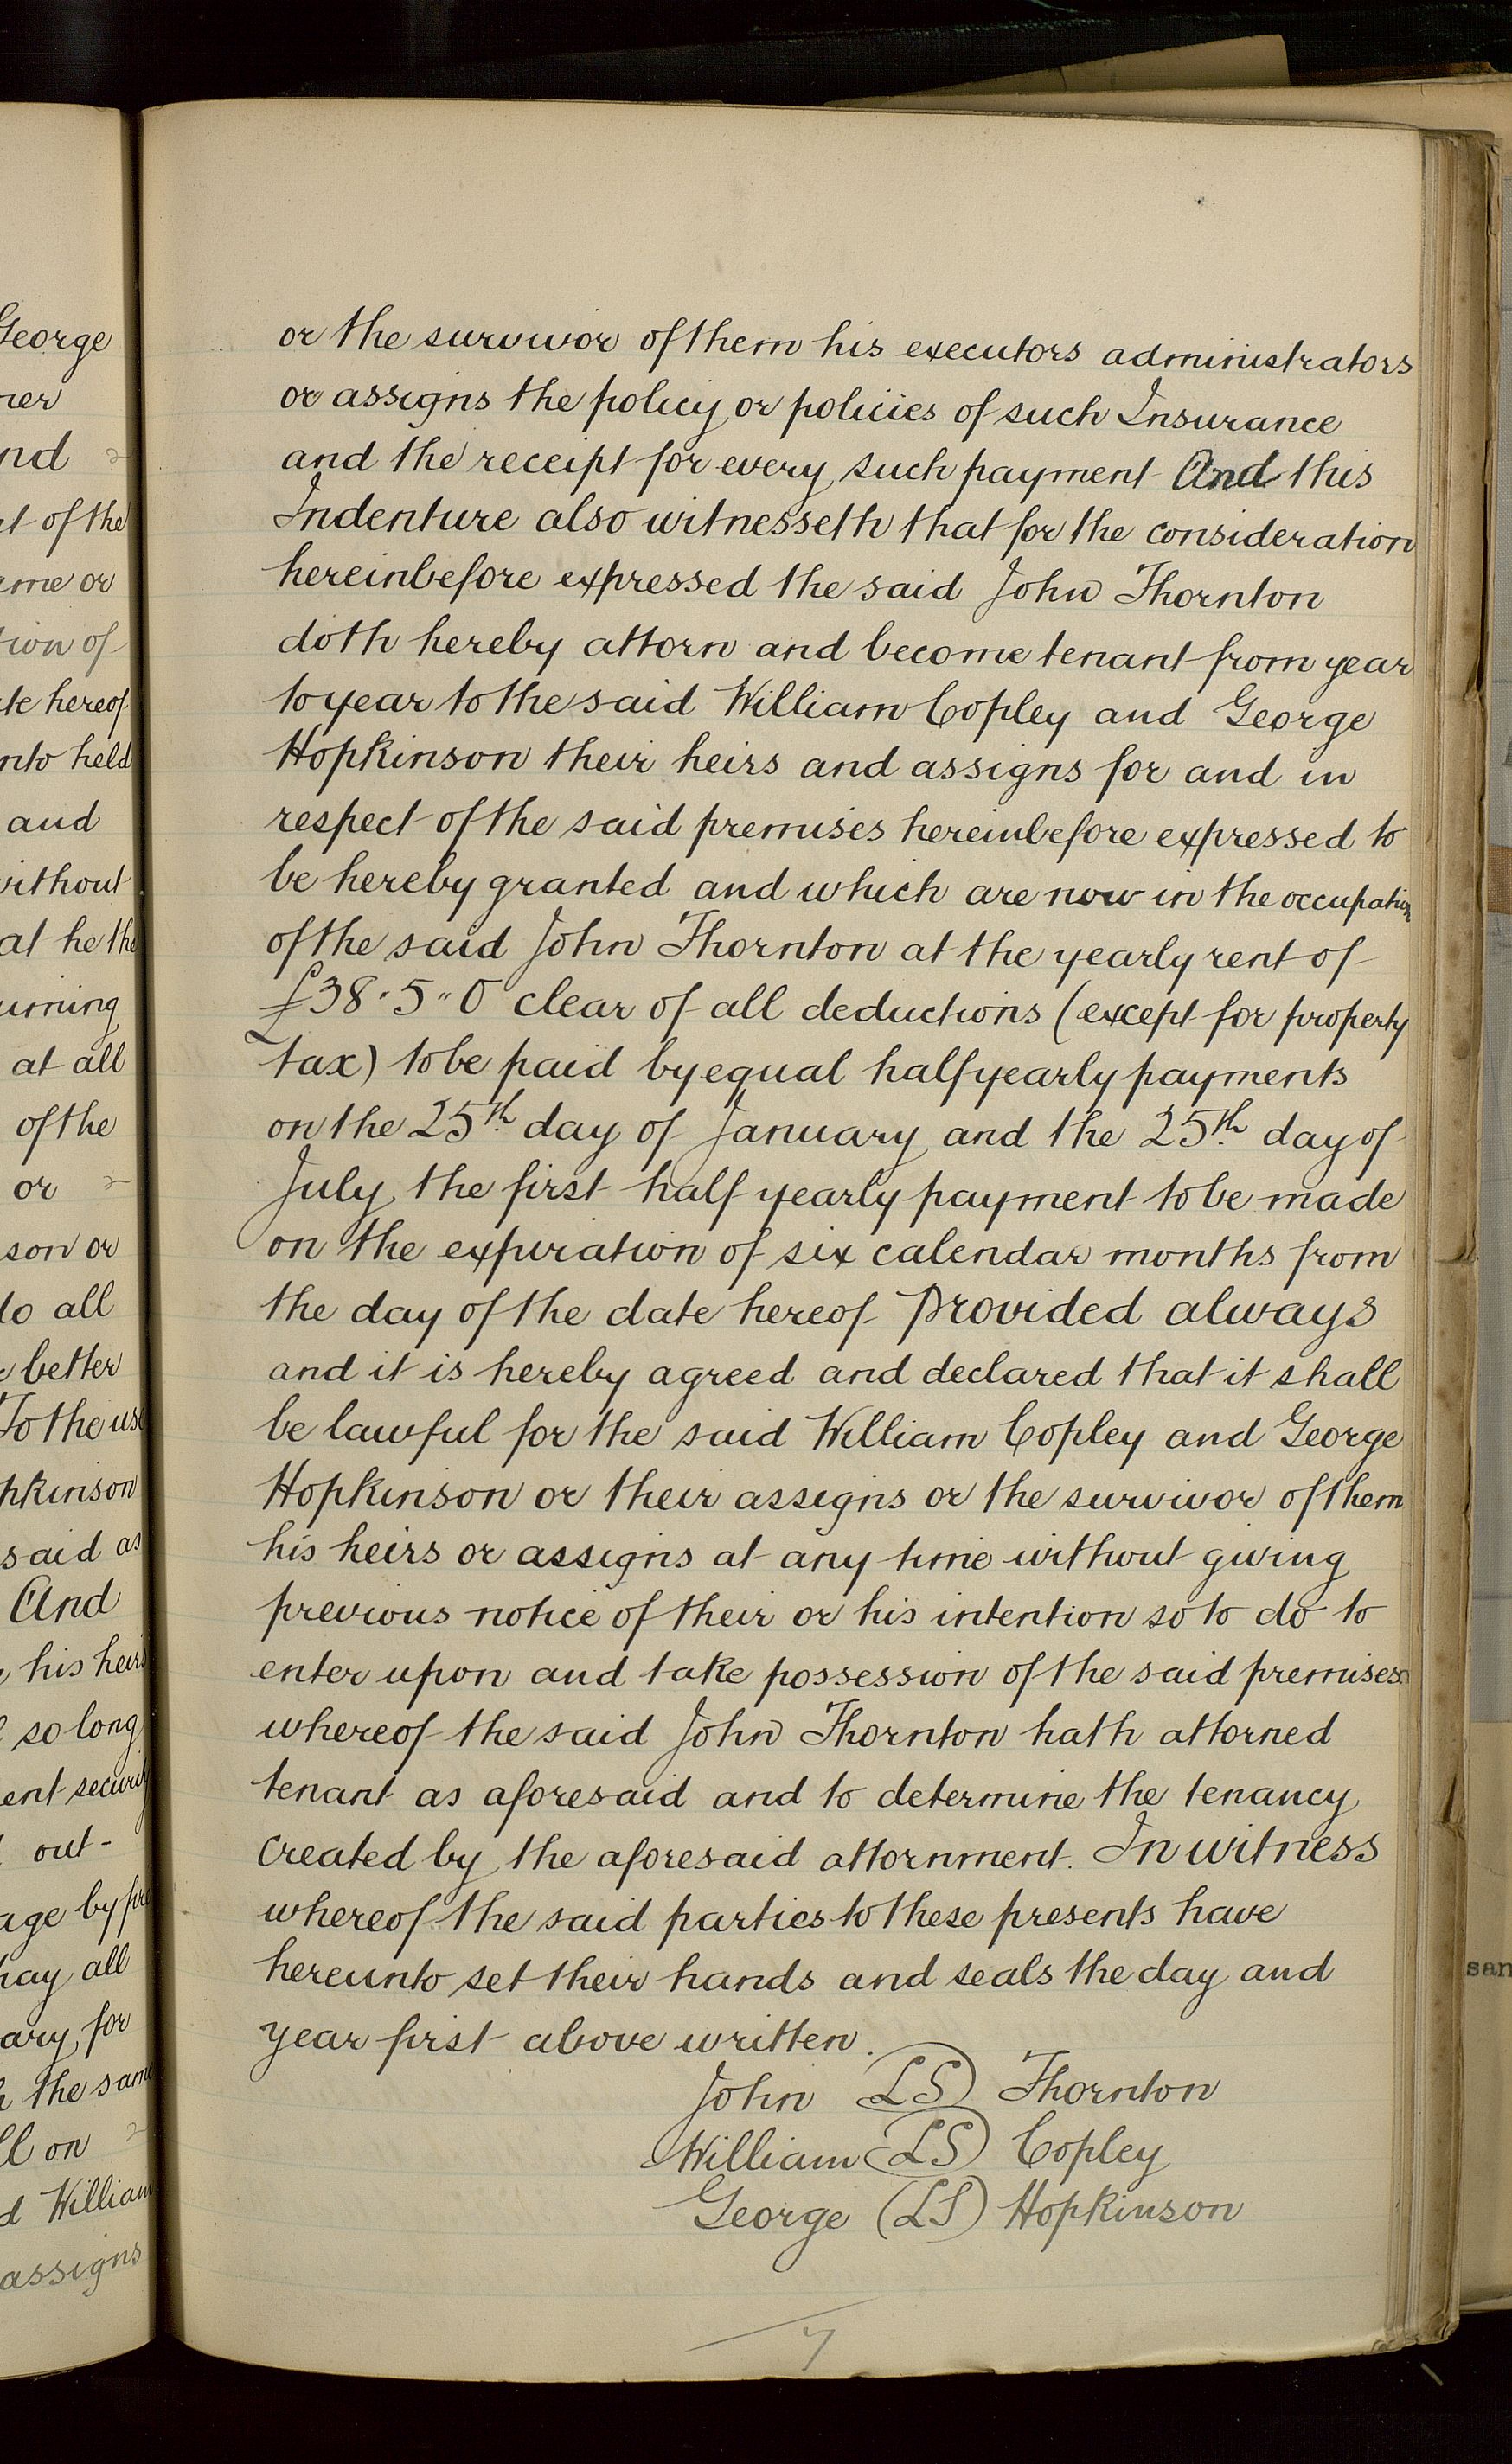 George
nd
t of the
me or
tion of
te hereof
nto held
and
without
at he the
at all
of the
or
son or
do all
better
To the use
pkinson
said as
And
his heirs
so long
ent security
out-
age by
all
ary for
the same
ll on
d William
assigns
or the survivor of them his executors administrators
or assigns the policy or policies of such Insurance
and the receipt for every such payment And this
Indenture also witnesseth that for the consideration
hereinbefore expressed the said John Thornton
doth hereby attorn and become tenant from year
to year to the said William Copley and George
Hopkinson their heirs and assigns for and in
respect of the said premises hereinbefore expressed to
be hereby granted and which are now in the occupation
of the said John Thornton at the yearly rent of
£38"5"0 clear of all deductions (except for property
tax) to be paid by equal halfyearly payments
on the 25th day of January and the 25th day of
July the first half yearly payment to be made
on the expiration of six calendar months from
the day of the date hereof Provided always
and it is hereby agreed and declared that it shall
be lawful for the said William Copley and George
Hopkinson or their assigns or the survivor of them
his heirs or assigns at any time without giving
previous notice of their or his intention so to do to
enter upon and take possession of the said premises
whereof the said John Thornton hath attorned
tenant as aforesaid and to determine the tenancy
created by the aforesaid attornment. In witness
whereof the said parties to these presents have
hereunto set their hands and seals the day and
year first above written.
John (LS) Thornton
William (LS) Copley
George (LS) Hopkinson
7
san